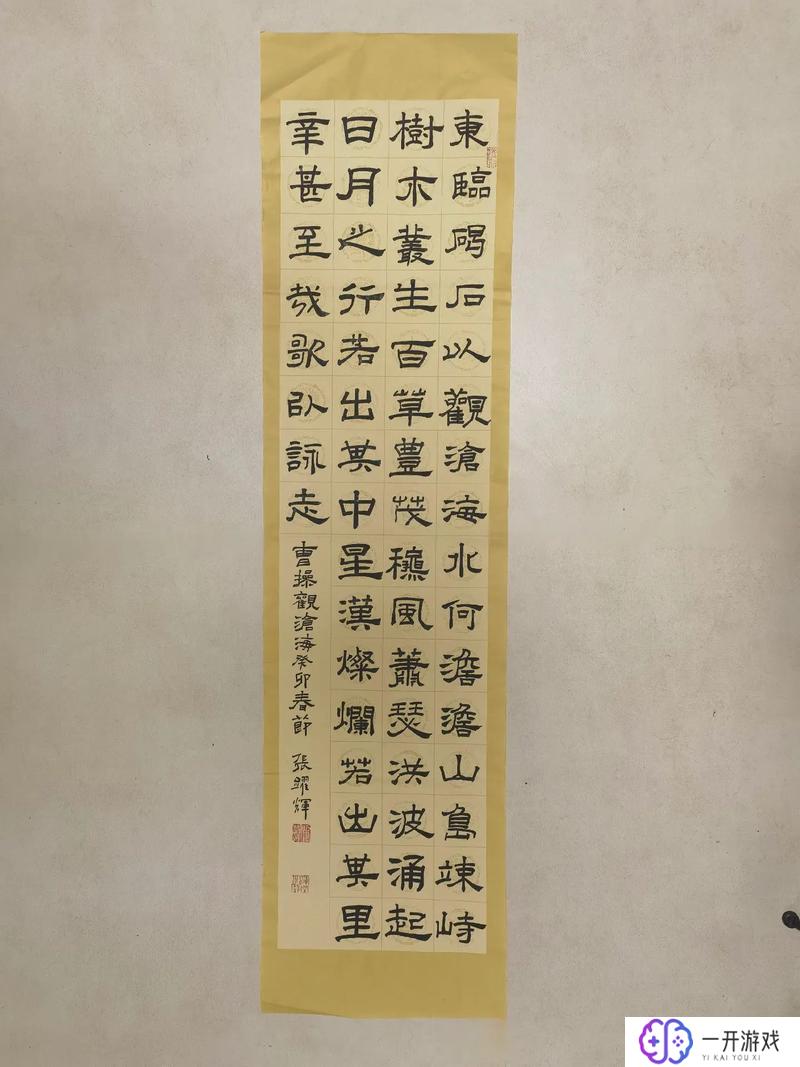 東臨碣石以觀滄海水何澹澹山島竦峙
樹木叢生百草豊茂龝風蕭瑟洪波涌起
日月之行若出其中星漢燦爛若出其里
幸甚至哉歌以詠志
曹操觀滄海癸卯春節 張躍輝
一开游戏
YI KAI YOU XI